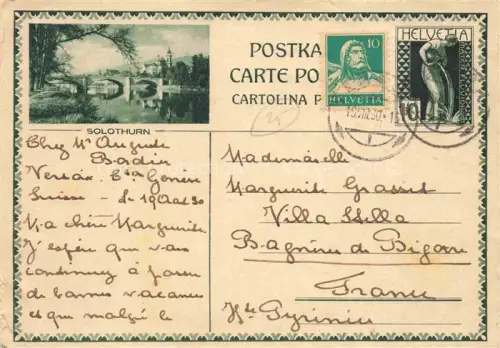 POSTKA
CARTE PO
CARTOLINA P
10
HELVETIA
HELVETIA
10
SOLOTHURN
Chez Mr Auguste
Badier
Versoix Cton Genève
Suisse - Le 19 Août 30
Ma chère Marguerite
J'espère que vous
continuez à passer
de bonnes vacances
et que malgré le
Mademoiselle
Marguerite Grasset
Villa Stella
Bagnères de Bigorre
France
Htes Pyrénées